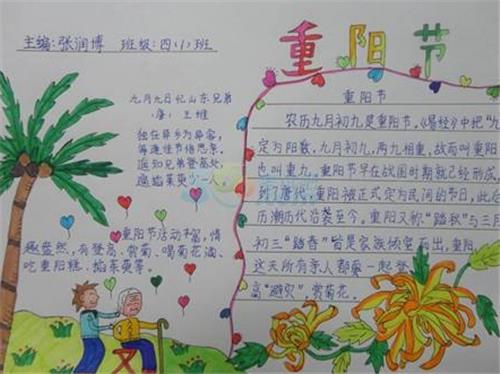 主编:张润博 班级:四(1)班
重阳节
九月九日忆山东兄弟
(唐) 王维
独在异乡为异客,
每逢佳节倍思亲,
遥知兄弟登高处,
遍插茱萸少一人。
重阳节活动丰富,情
趣盎然,有登高、赏菊、喝菊花酒、
吃重阳糕、插茱萸等。
重阳节
农历九月初九是重阳节,《易经》中把"九
定为阳数,九月初九,两九相重,故而叫重阳
也叫重九。重阳节早在战国时期就已经形成,
到了唐代,重阳被正式定为民间的节日,此
历潮历代沿袭至今,重阳又称"踏秋"与三
初三"踏春"皆是家族倾室而出,重阳
这天所有亲人都要一起登
高"避灾",赏菊花。